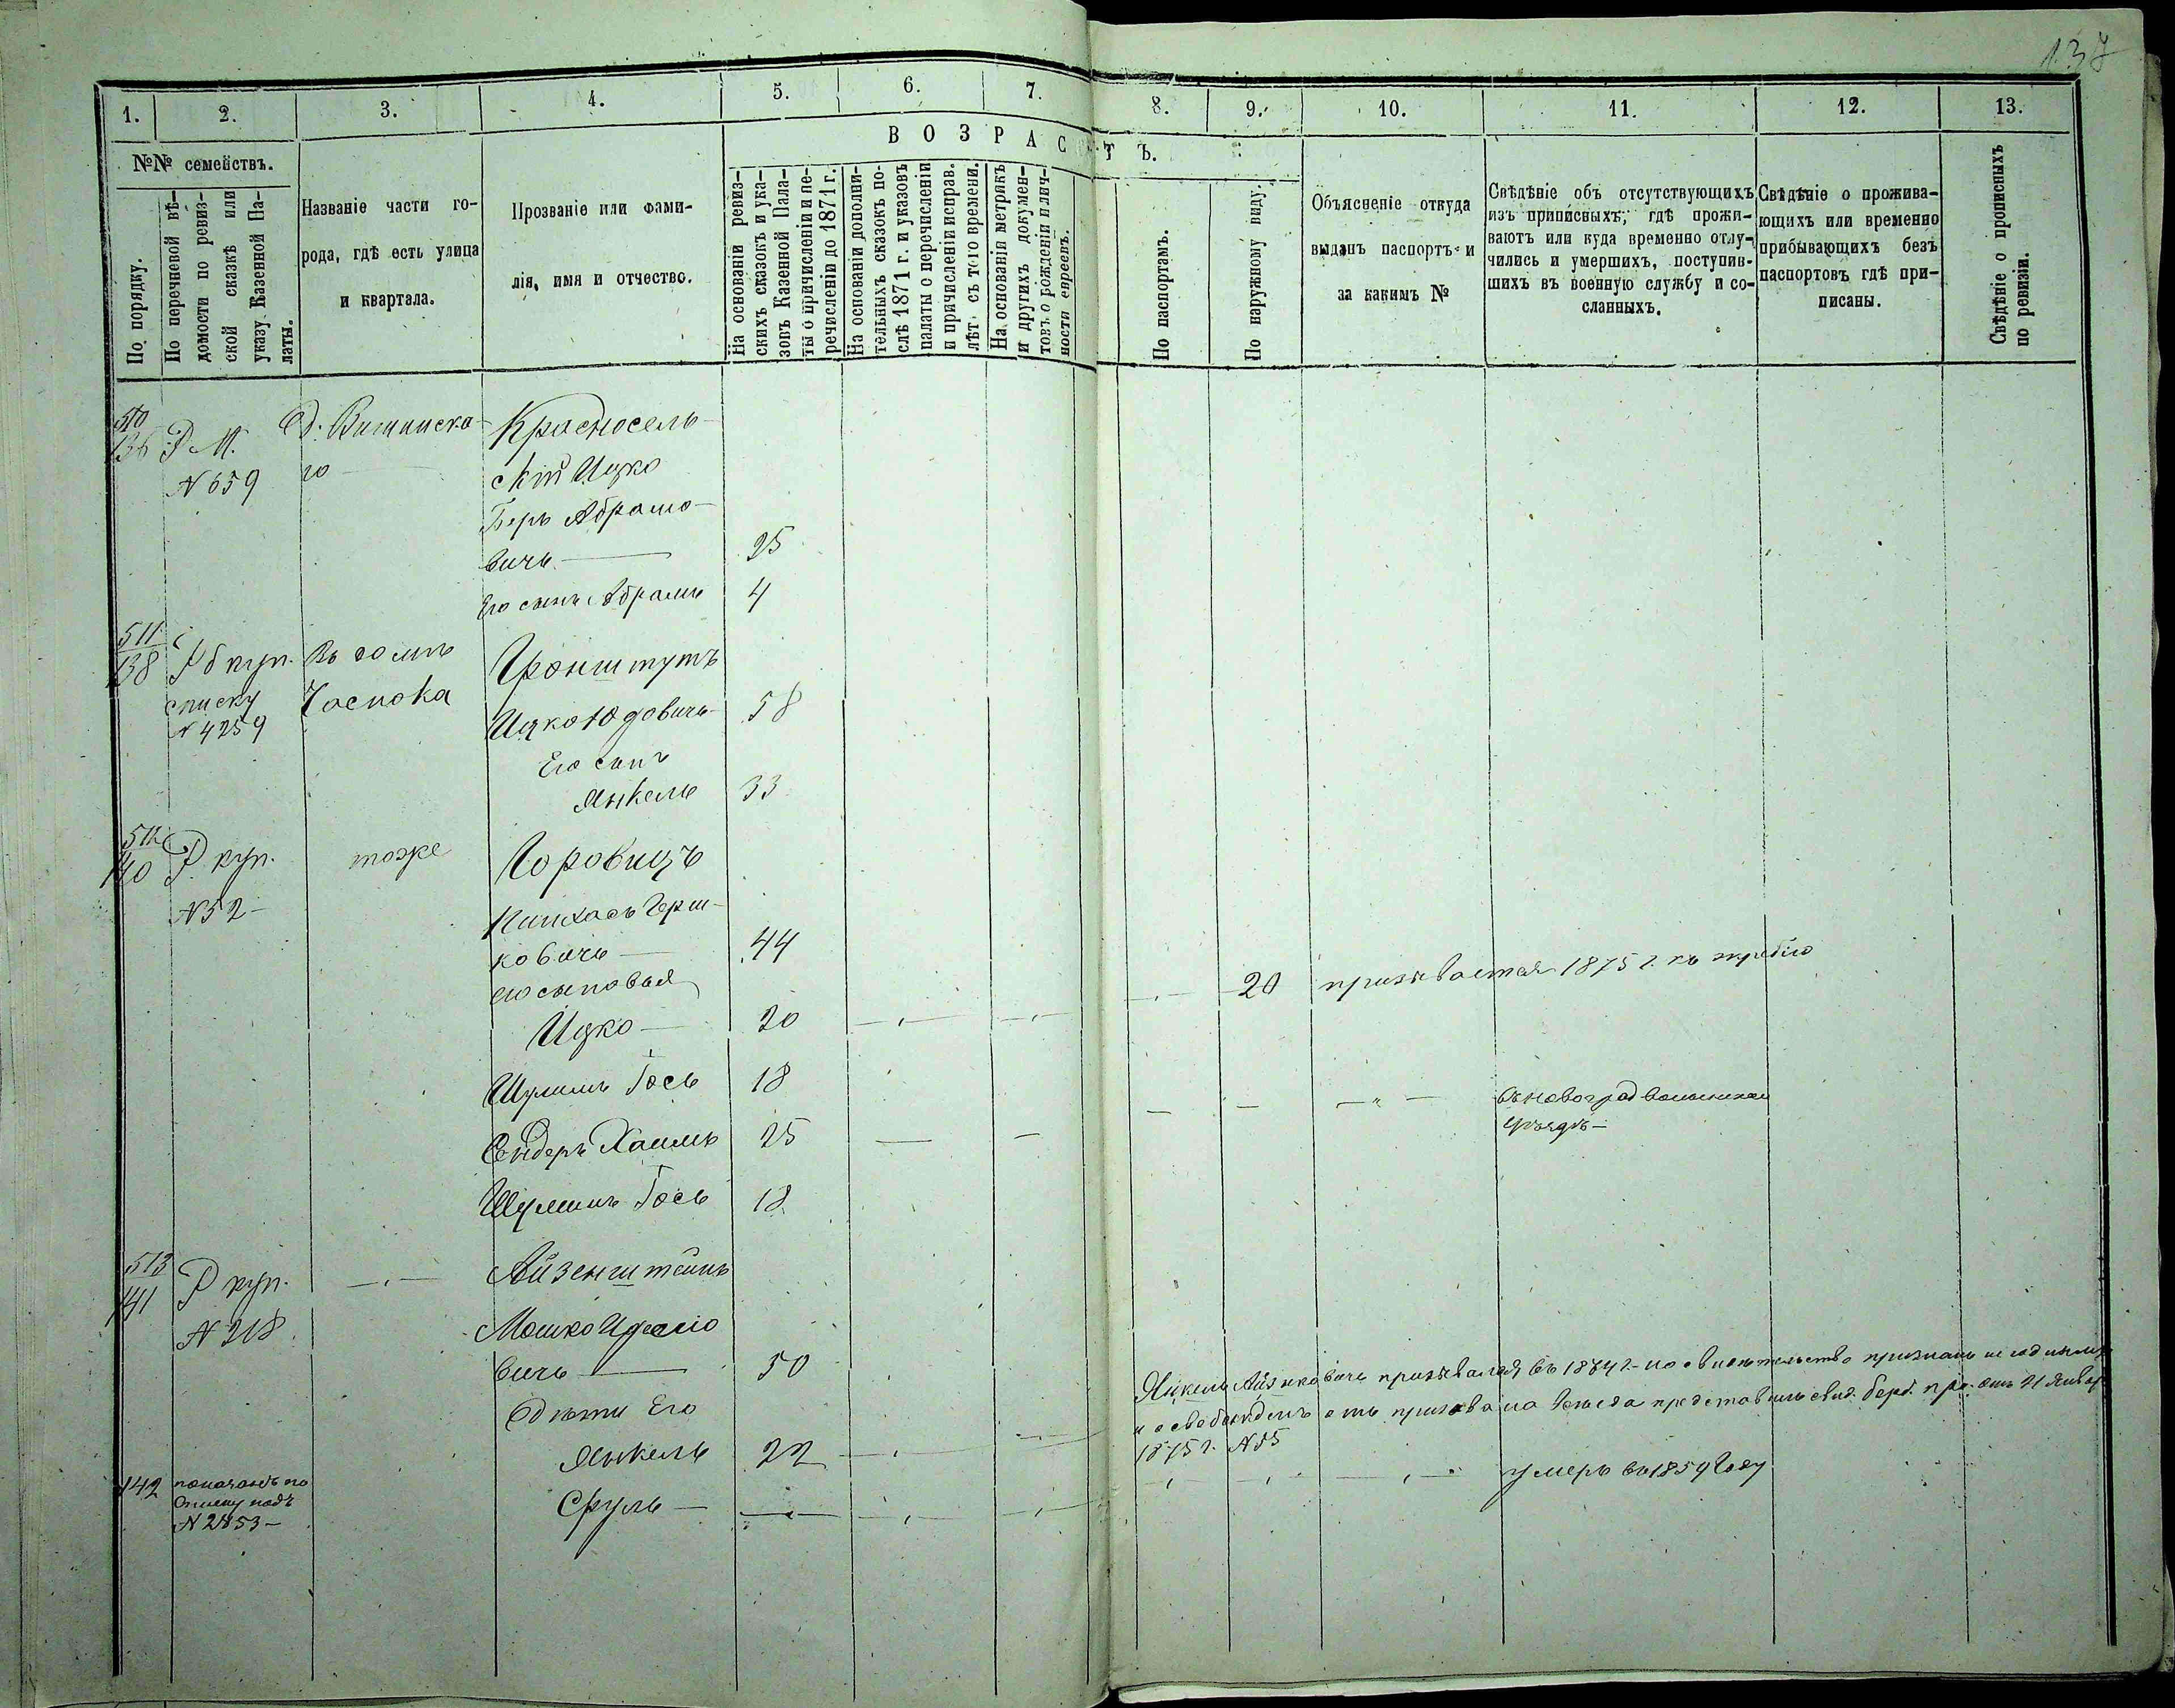 137
1. 2. 3. 4. 5. 6. 7. 8. 9. 10. 11. 12. 13.
№№ семействъ.
ВОЗРАСТЪ.
По порядку.
По перечневой вѣ-
домости по ревиз-
ской сказкѣ или
указу Казенной Па-
латы.
Названіе части го-
рода, гдѣ есть улица
и квартала.
Прозваніе или фами-
лія, имя и отчество.
На основаніи ревиз-
скихъ сказокъ и ука-
зовъ Казенной Пала-
ты о причисленіи и пе-
речисленіи до 1871 г.
На основаніи дополни-
тельныхъ сказокъ по-
слѣ 1871 г. и указовъ
палаты о перечисленіи
и причисленіи исправ.
лѣт. съ того времени.
На основаніи метрикъ
и другихъ докумен-
товъ о рожденіи и лич-
ности евреевъ.
По паспортамъ.
По наружному виду.
Объясненіе откуда
выданъ паспортъ и
за какимъ №
Свѣдѣніе объ отсутствующихъ
изъ приписныхъ, гдѣ прожи-
ваютъ или куда временно отлу-
чились и умершихъ, поступив-
шихъ въ военную службу и со-
сланныхъ.
Свѣдѣніе о прожива-
ющихъ или временно
прибывающихъ безъ
паспортовъ гдѣ при-
писаны.
Свѣдѣніе о прописныхъ
по ревизіи.
510
136 Р М. Красносель-
№ 659 го скій Ицко
Беръ Абрамо-
вичъ 25
Его сынъ Абрамъ 4
511
138 куп. Въ домѣ Гронштутъ
списку
№ 4259 Ицко Юдовичъ 58
Его сынъ
Янкель 33
512
140 Р. куп. тоже Горовицъ
№ 52 Пинхасъ Герш-
ковичъ 44
его сыновья
Ицко 20 20 призывается 1875 г. къ жребію
Шулимъ Іось 18 Въ Новоградволынскомъ
уѣздѣ
Сендеръ Хаимъ 25
Шулимъ Іось 18
513
141 Р куп. Айзенштейнъ
№ 218 Мошко
вичъ 50
дѣти Его
Янкель 22
призывался въ 1874 г.
1875 г. № 55
142 по
списку подъ
№ 2853 Сруль умеръ въ 1859 году